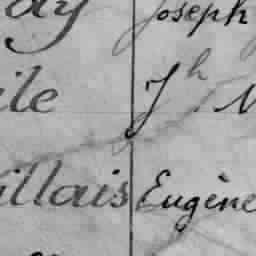 ay Joseph
ile Jh
illais Eugène